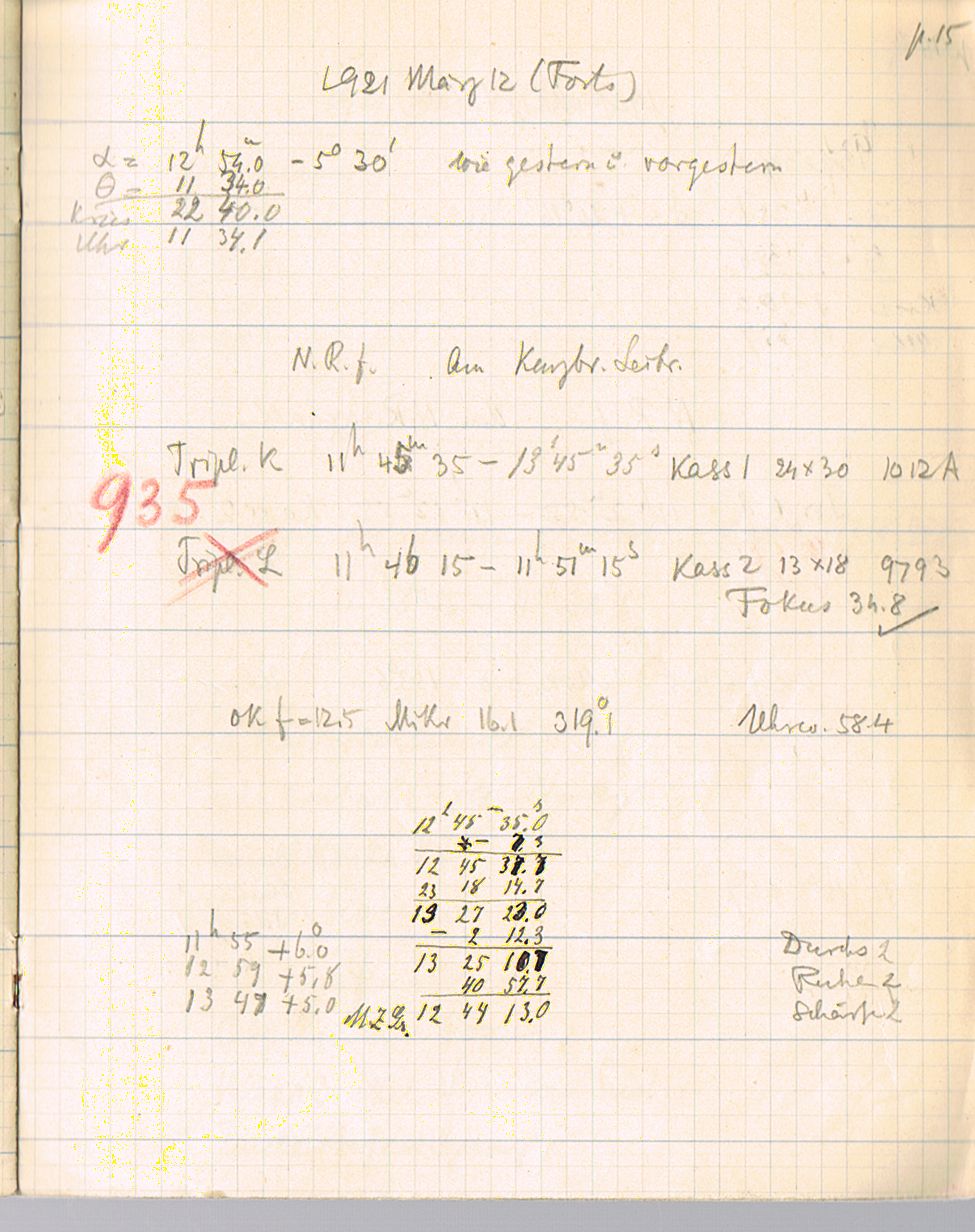 p. 15
1921 März 12 (Forts)
α = 12ʰ 54ᵐ.0 - 5° 30' wie gestern u. vorgestern
θ = 11 34.0
Kreis 22 40.0
Uhr 11 34.1
N.R.f. Am
Tripl. K 11ʰ 45ᵐ 35 - 13ʰ 45ᵐ 35ˢ Kass 1 24×30 1012A
935
Tripl. L 11ʰ 46 15 - 11ʰ 51ᵐ 15ˢ Kass 2 13×18 9793
Fokus 34.8 ✓
ok f = 12.5 Mikr 16.1 319°.1 Uhrco. 58.4
12ʰ 45ᵐ 35.0ˢ
12 45 37.7
23 18 14.7
13 27 23.0
- 2 12.3
11ʰ 55 +6°.0
13 25 10.7
12 59 +5.8
40 57.7
13 47 +5.0
M.Z.Gr. 12 44 13.0
Durchs 2
Ruhe 2
Schärfe 2